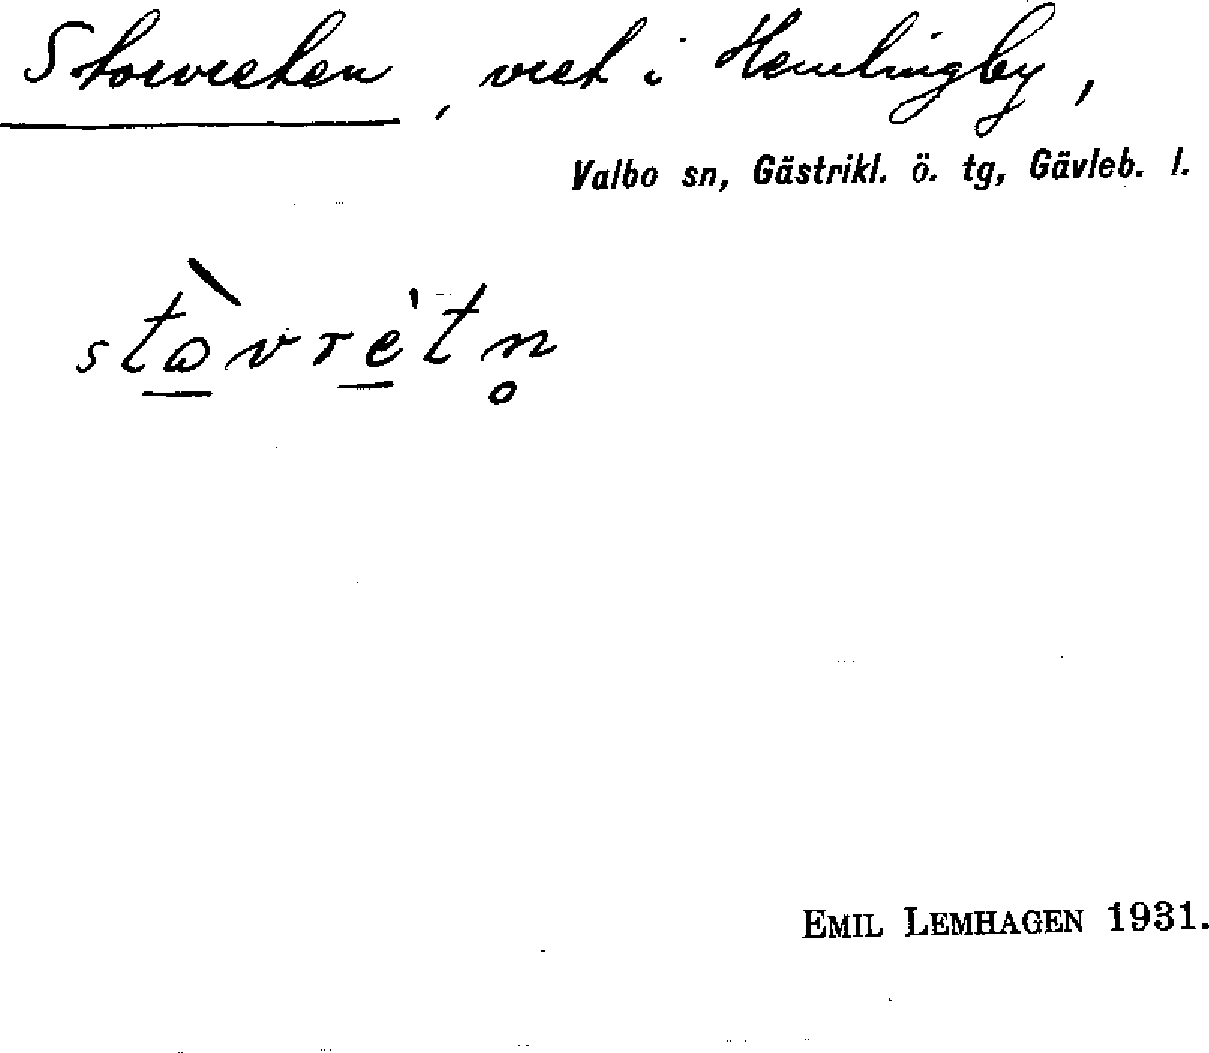 Storvreten, vret i Hemlingby,
Valbo sn, Gästrikl. ö. tg, Gävleb. l.
stωvretn̥
EMIL LEMHAGEN 1931.